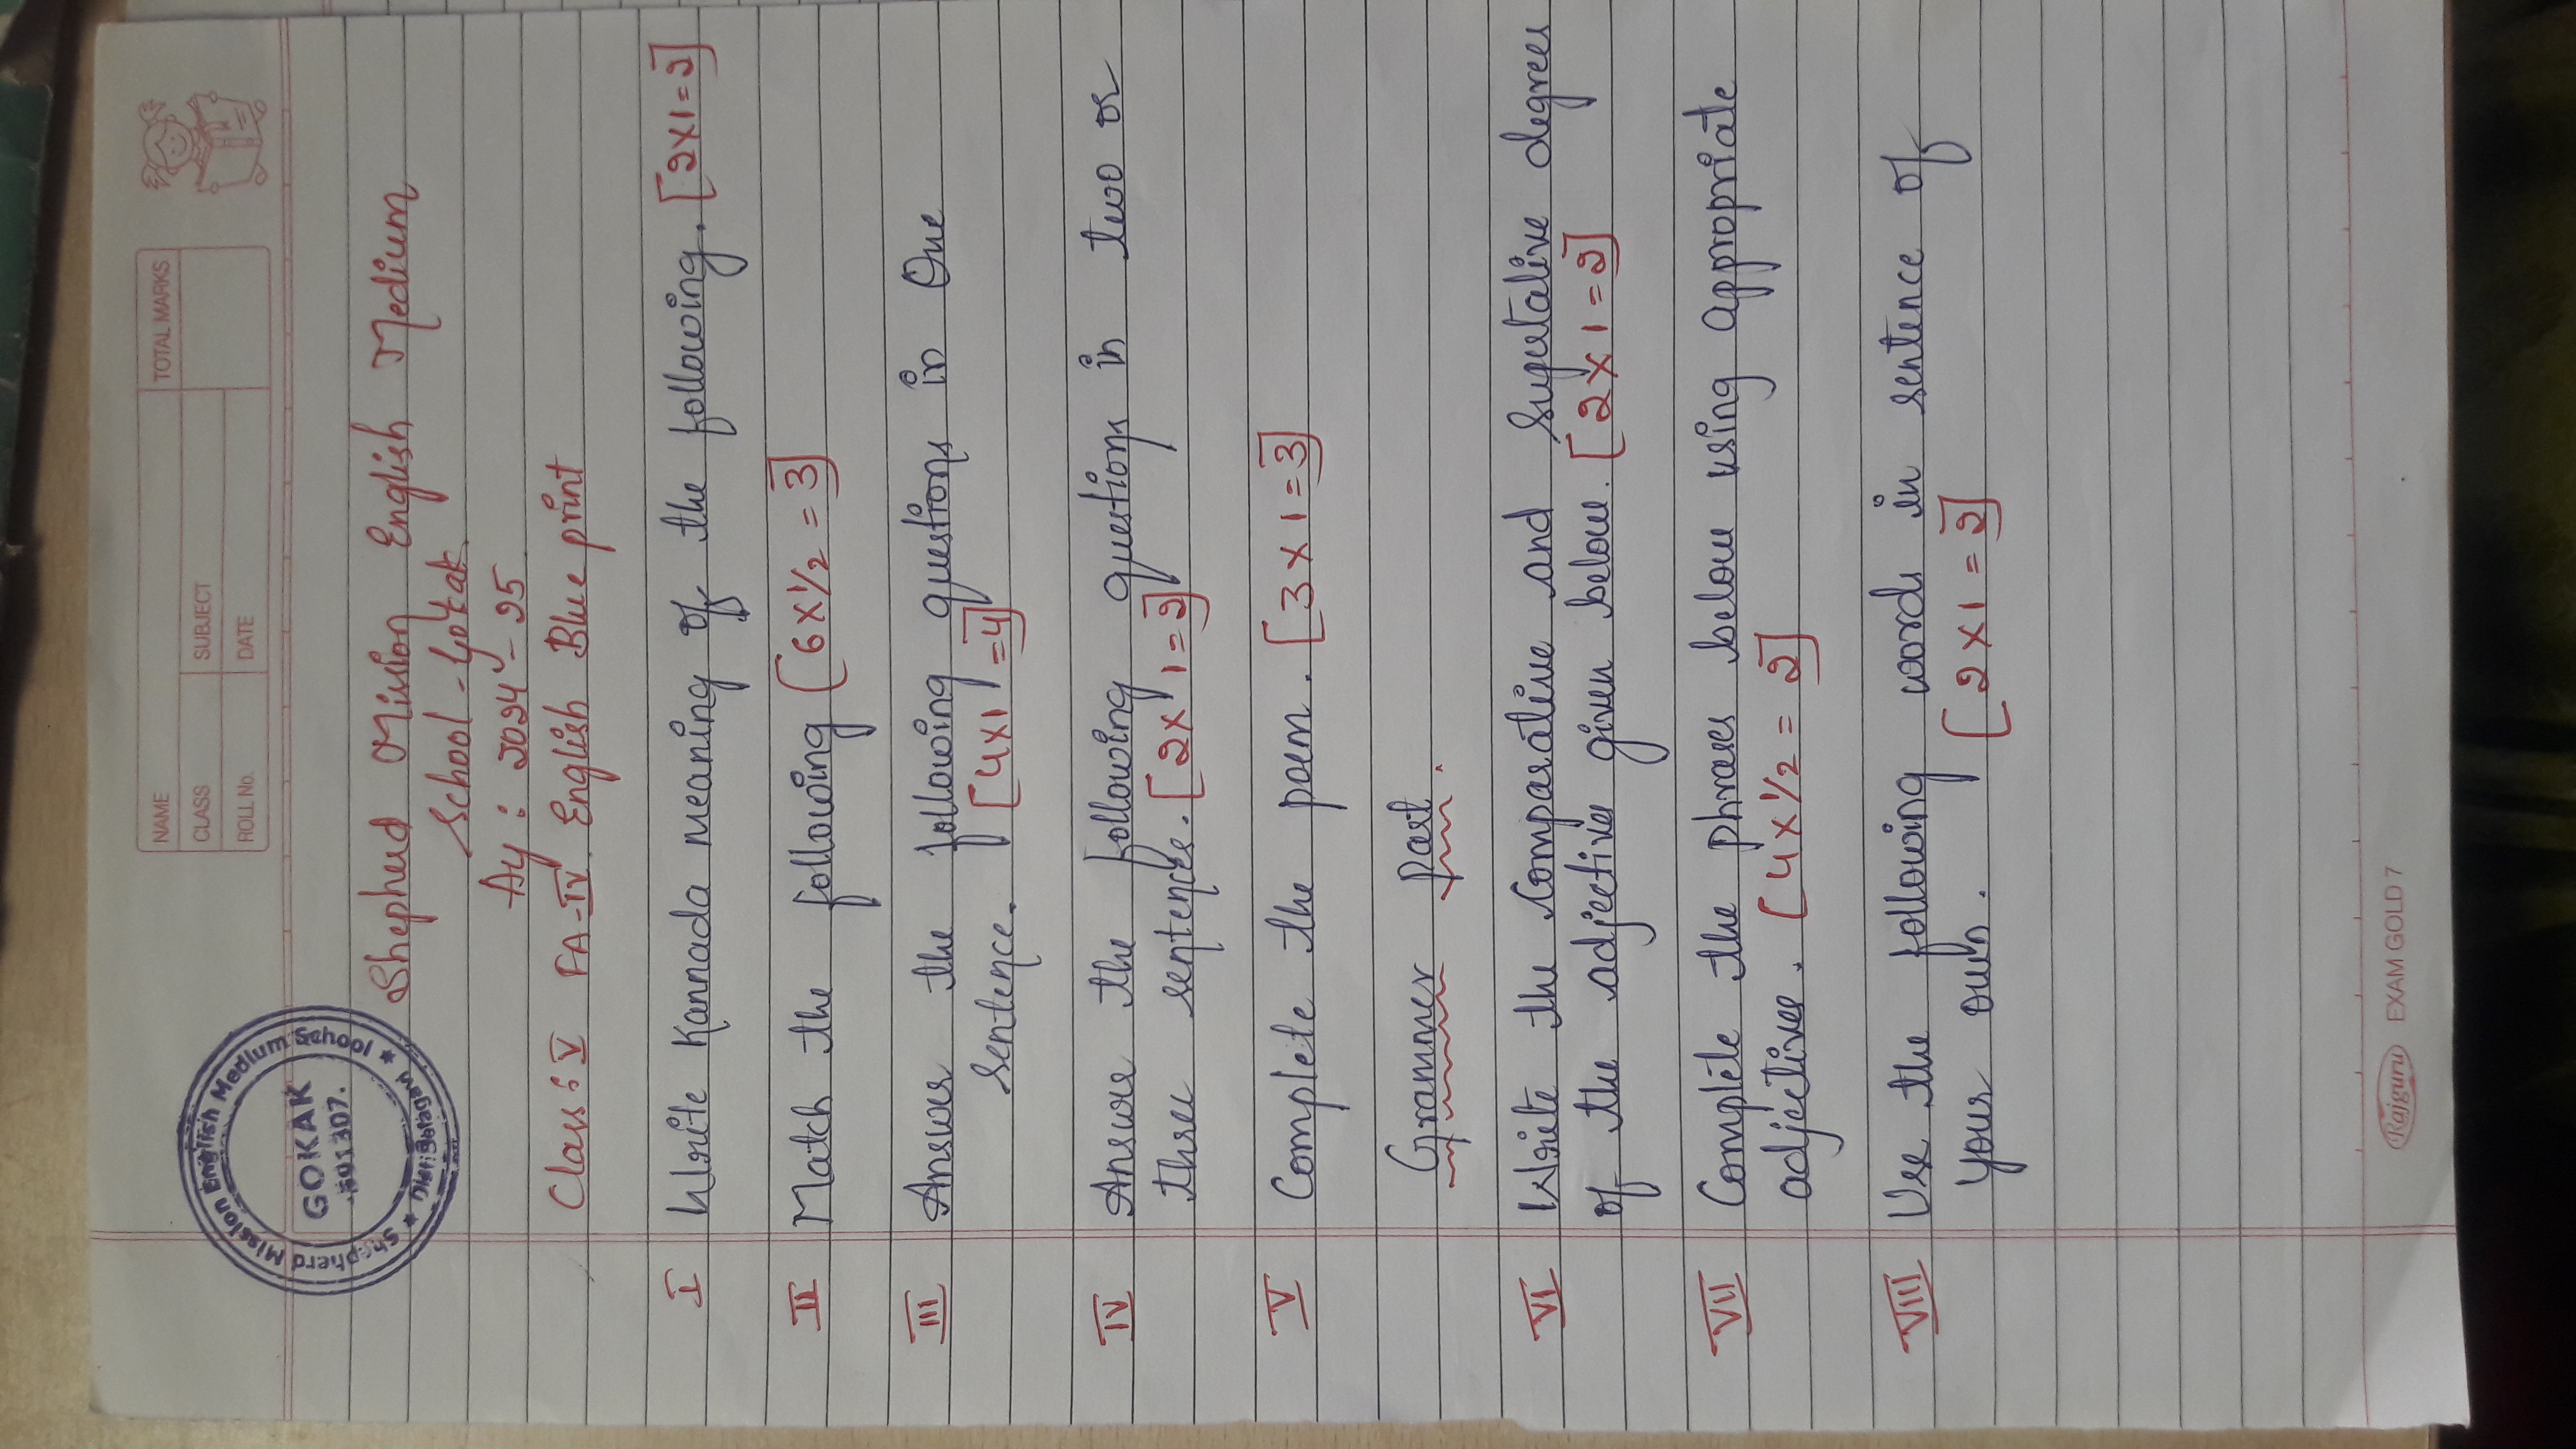 NAME
TOTAL MARKS
CLASS
SUBJECT
ROLL No.
DATE
Shepherd Mission English Medium School
GOKAK
591307.
Dist: Belagavi
Shepherd Mission English Medium
School - Gokak
Ay : 2024 - 25
Class: V FA-IV English Blue print
I Write Kannada meaning of the following. [2x1=2]
II Match the following [6 x 1/2 = 3]
III Answer the following questions in One
sentence. [4x1 = 4]
IV Answer the following questions in two or
three sentences. [2x1=2]
V Complete the poem. [3 x 1=3]
Grammer part.
VI Write the Comparative and Suputalive degrees
of the adjective given below. [2 x 1 = 2]
VII Complete the phrases below using appropriate
adjectives. [4 x 1/2 = 2]
VIII Use the following words in sentence of
your own. [2 x 1 = 2]
Rajguru EXAM GOLD 7